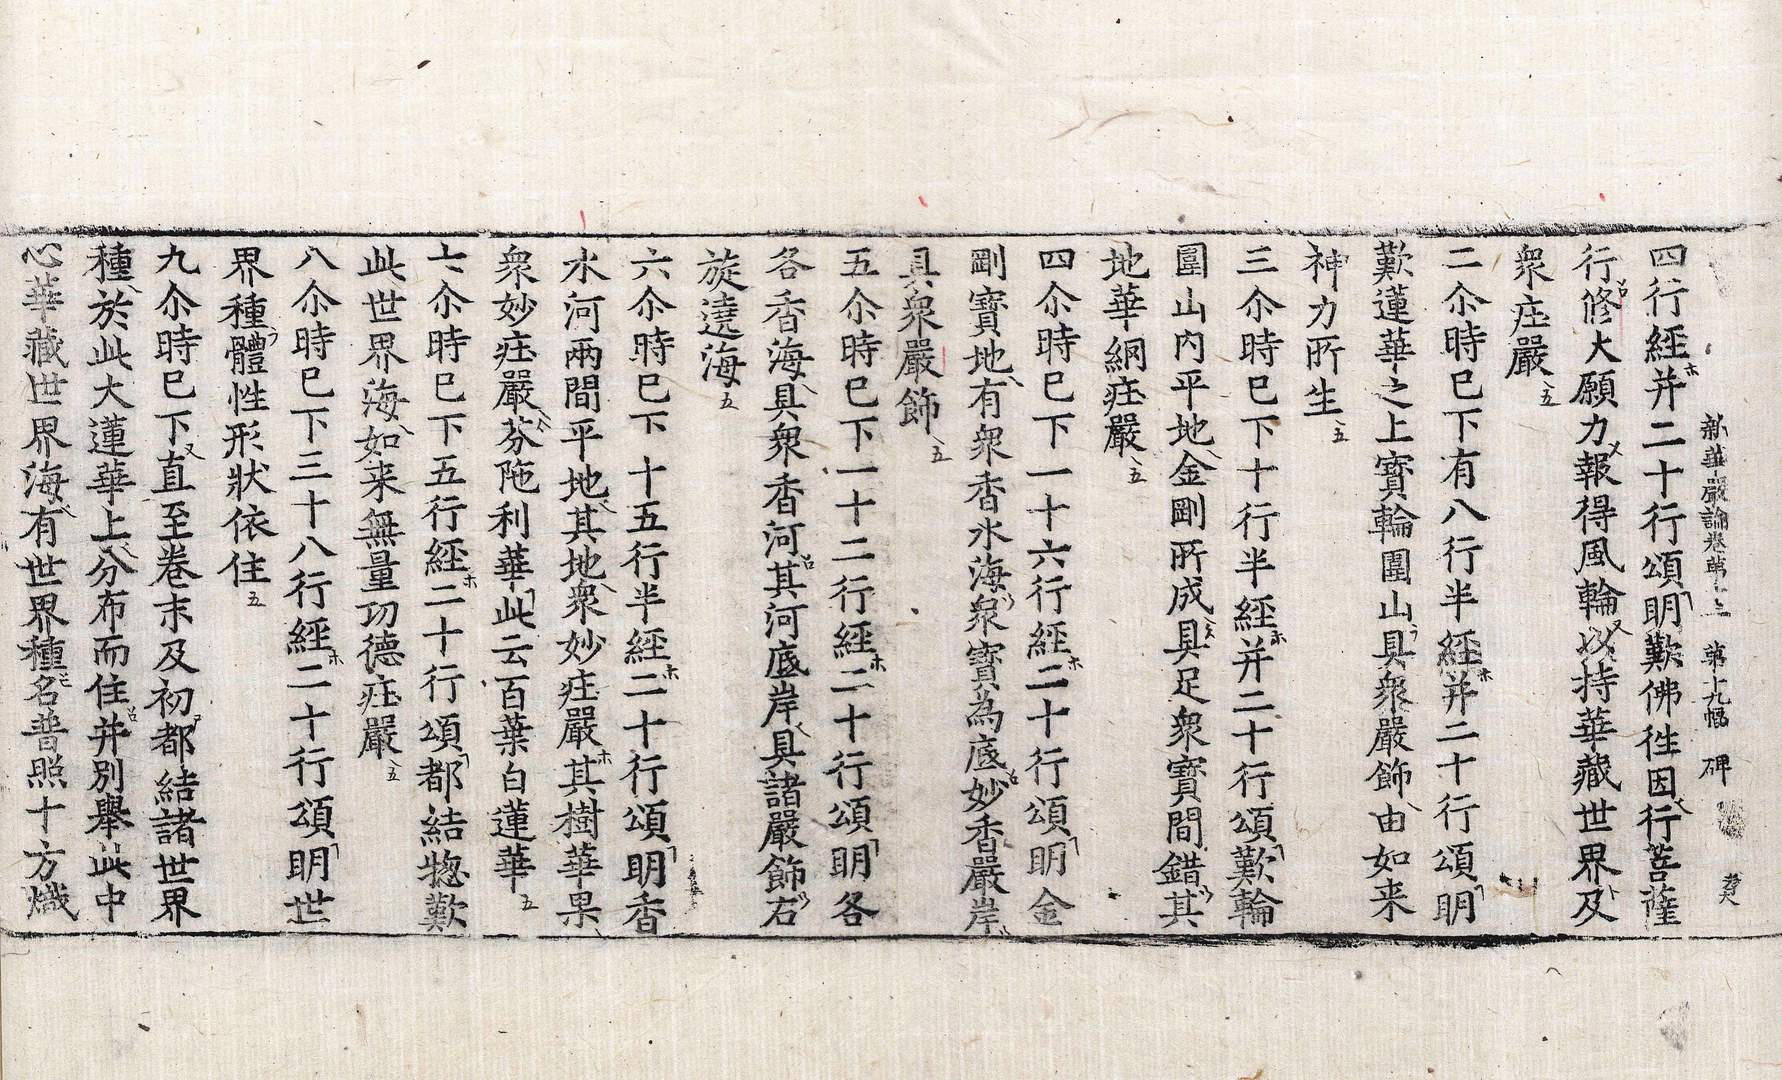 新華嚴論卷第十三 第十九幅 碑
四行經并二十行頌明歎佛徃因行菩薩
行修大願力報得風輪以持華藏世界及
衆庄嚴
二尒時已下有八行半經并二十行頌明
歎蓮華之上寶輪圍山具衆嚴飾由如来
神力所生
三尒時已下十行半經并二十行頌歎輪
圍山内平地金剛所成具足衆寶間錯其
地華網庄嚴
四尒時已下一十六行經二十行頌明金
剛寶地有衆香水海衆寶為底妙香嚴岸
具衆嚴飾
五尒時已下一十二行經二十行頌明各
各香海具衆香河其河底岸具諸嚴飾右
旋遶海
六尒時已下十五行半經二十行頌明香
水河兩間平地其地衆妙庄嚴其樹華果
衆妙庄嚴芬陁利華此云百葉白蓮華
七尒時已下五行經二十行頌都結揔歎
此世界海如来無量功德庄嚴
八尒時已下三十八行經二十行頌明世
界種體性形狀依住
九尒時已下直至卷末及初都結諸世界
種於此大蓮華上分布而住并別舉此中
心華藏世界海有世界種名普照十方熾